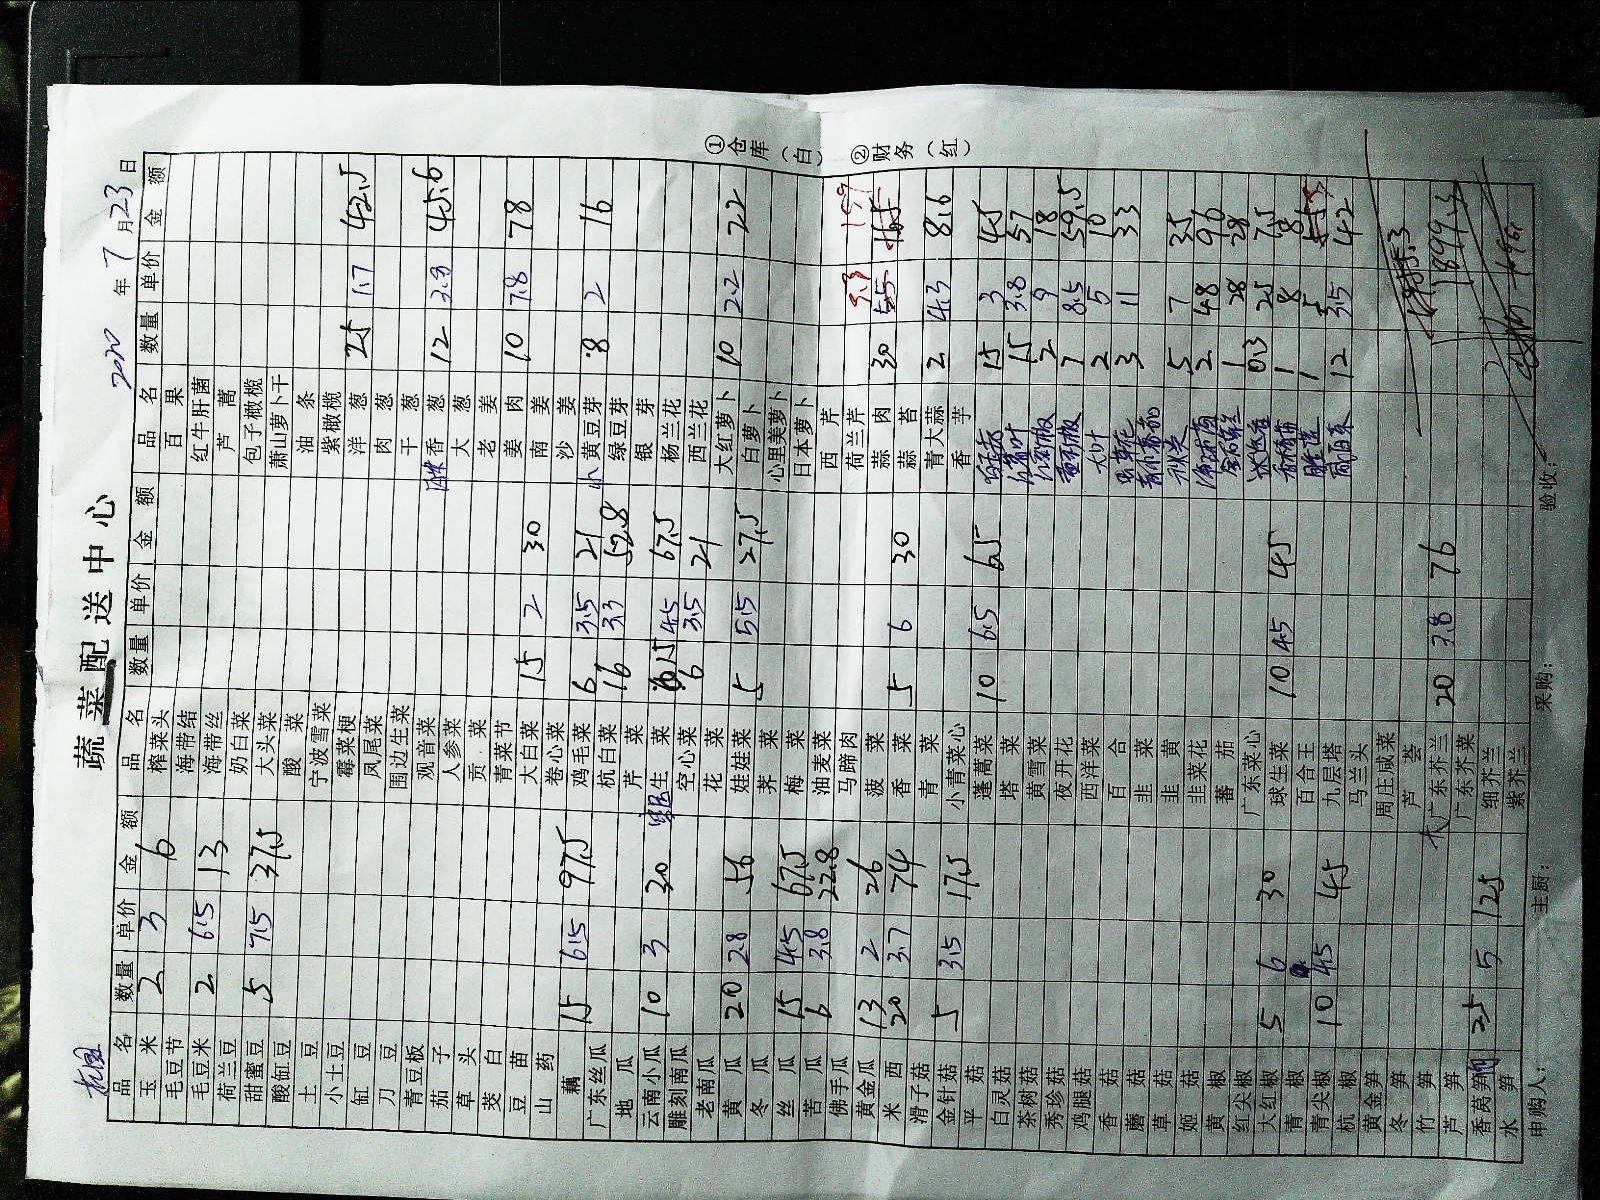 蔬菜配送中心
2020 年 7 月 23 日
品名 数量 单价 金额 品名 数量 单价 金额 品名 数量 单价 金额
玉米 2 3 6 榨菜头 百果
毛豆节 海带结 红牛肝菌
毛豆米 2 6.5 13 海带丝 芦蒿
荷兰豆 奶白菜 包子橄榄
甜蜜豆 5 7.5 37.5 大头菜 萧山萝卜干
酸缸豆 酸菜 油条
土豆 宁波雪菜 紫橄榄
小土豆 霉菜梗 洋葱 25 1.7 42.5
缸豆 凤尾菜 肉葱
刀豆 围边生菜 干葱
青豆板 观音菜 香葱 12 3.8 45.6
茄子 人参菜 大葱
草头 贡菜 老姜
茭白 青菜节 姜肉 10 7.8 78
豆苗 大白菜 15 2 30 南姜
山药 卷心菜 沙姜
藕 15 6.5 97.5 鸡毛菜 6 3.5 21 小黄豆芽 8 2 16
广东丝瓜 杭白菜 16 3.3 52.8 绿豆芽
地瓜 芹菜 银芽
云南小瓜 10 3 30 生菜 15 4.5 67.5 杨兰花
雕刻南瓜 空心菜 6 3.5 21 西兰花
老南瓜 花菜 大红萝卜 10 2.2 22
黄瓜 20 2.8 56 娃娃菜 5 5.5 27.5 白萝卜
冬瓜 荠菜 心里美萝卜
丝瓜 15 4.5 67.5 梅菜 日本萝卜
苦瓜 6 3.8 22.8 油麦菜 西芹
佛手瓜 马蹄肉 荷兰芹
黄金瓜 13 2 26 菠菜 蒜肉 30 5.3 159
米西 20 3.7 74 香菜 5 6 30 蒜苔
滑子菇 青菜 青大蒜 2 4.3 8.6
金针菇 5 3.5 17.5 小青菜心 香芋
平菇 蓬蒿菜 10 6.5 65 15 3 45
白灵菇 塔菜 15 3.8 57
茶树菇 黄雪菜 2 9 18
秀珍菇 夜开花 7 8.5 59.5
鸡腿菇 西洋菜 大叶 2 5 10
香菇 百合 3 11 33
蘑菇 韭菜
草菇 韭黄 秋葵 5 7 35
姬菇 韭菜花 2 48 96
黄椒 蕃茄 1 28 28
红尖椒 广东菜心 0.3 25 7.5
大红椒 5 6 30 球生菜 10 4.5 45 1 8 8
青椒 百合王 1
青尖椒 10 4.5 45 九层塔 咸白菜 12 3.5 42
杭椒 马兰头
黄金笋 周庄咸菜
冬笋 芦荟
竹笋 大广东芥兰 20 3.8 76
芦笋 广东芥菜 1899.3
香莴笋 25 5 125 细芥兰
水笋 紫芥兰
申购人： 主厨： 采购： 验收：
①仓库（白） ②财务（红）